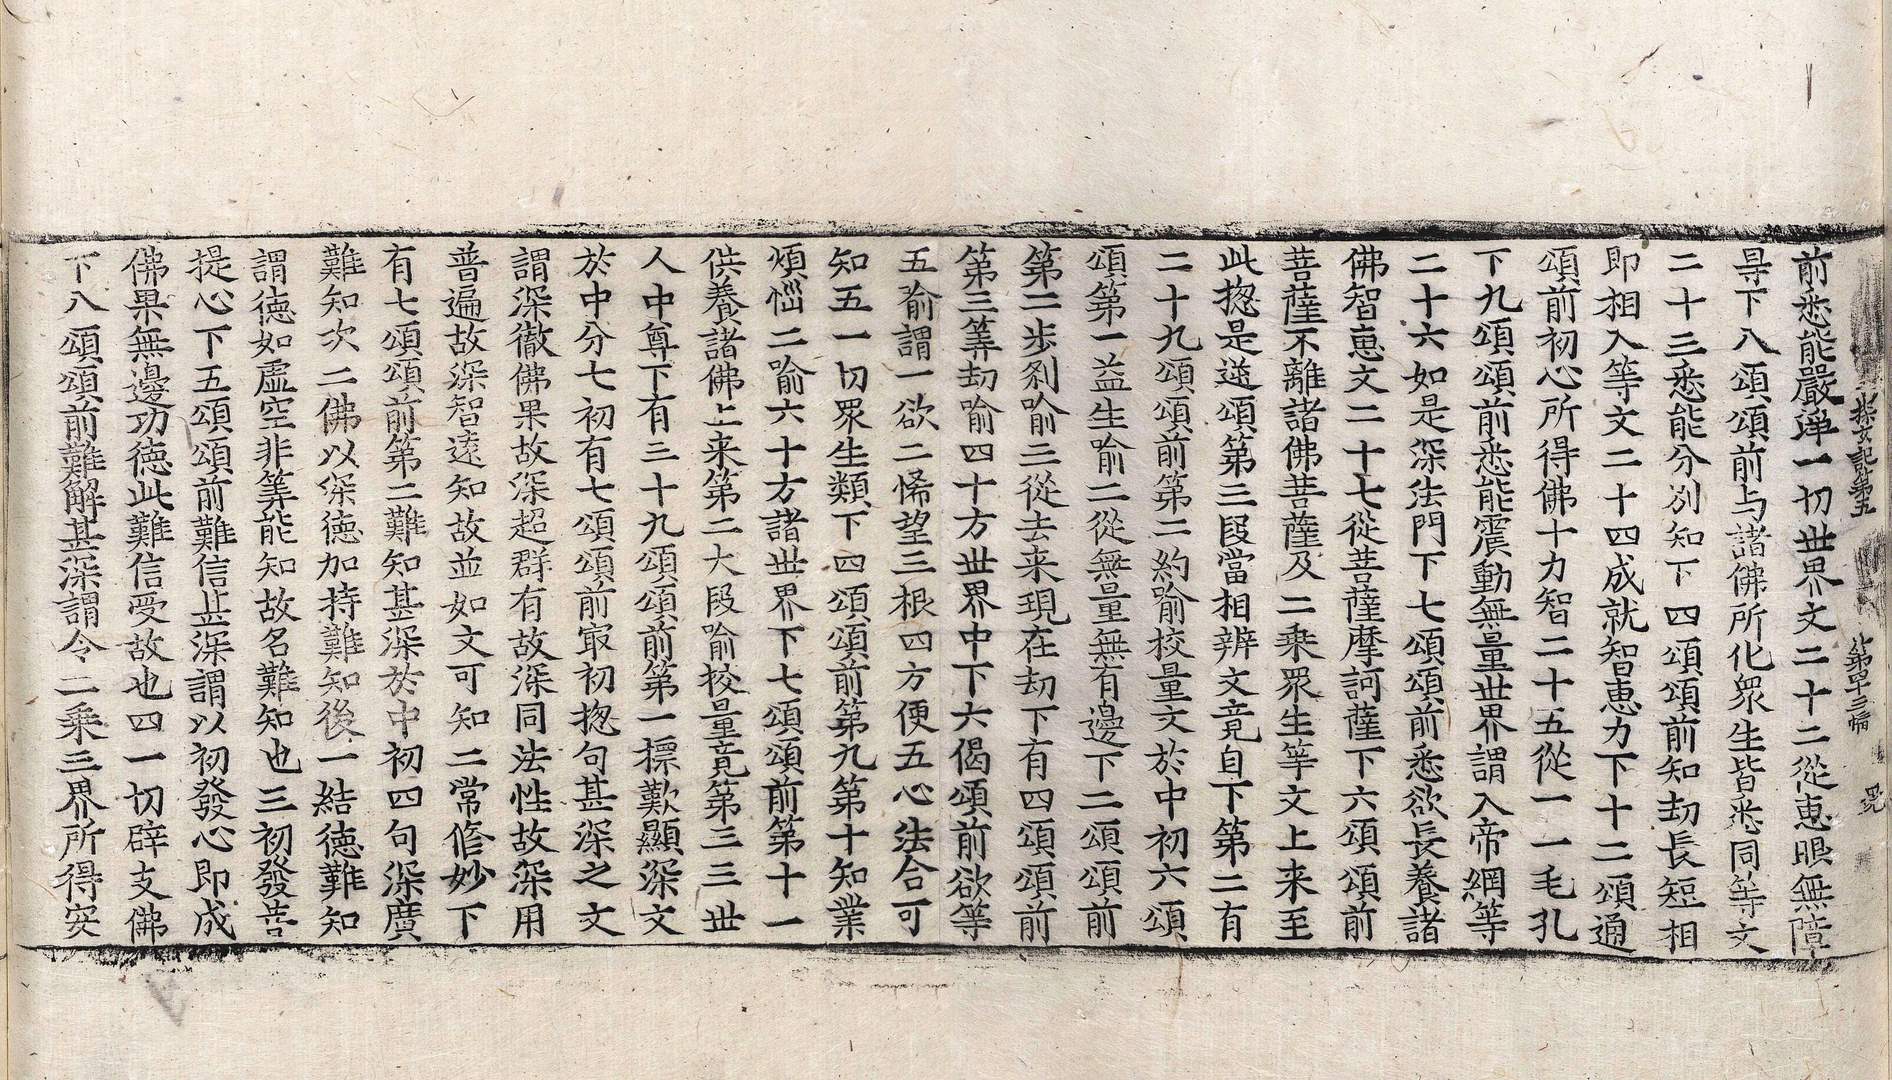 探玄記第五 第四十三幅
前悉能嚴淨一切世界文二十二從恵眼無障
㝵下八頌頌前与諸佛所化衆生皆悉同等文
二十三悉能分別知下四頌頌前知劫長短相
即相入等文二十四成就智恵力下十二頌通
頌前初心所得佛十力智二十五從一一毛孔
下九頌頌前悉能震動無量世界謂入帝網等
二十六如是深法門下七頌頌前悉欲長養諸
佛智恵文二十七從菩薩摩訶薩下六頌頌前
菩薩不離諸佛菩薩及二乘眾生等文上来至
此揔是送頌第三段當相辨文竟自下第二有
二十九頌頌前第二約喻校量文於中初六頌
頌第一益生喻二從無量無有邊下二頌頌前
第二步刹喻三從去来現在劫下有四頌頌前
第三筭劫喻四十方世界中下六偈頌前欲等
五喻謂一欲二悕望三根四方便五心法合可
知五一切眾生類下四頌頌前第九第十知業
煩惱二喻六十方諸世界下七頌頌前第十一
供養諸佛上来第二大段喻挍量竟第三三世
人中尊下有三十九頌頌前第一標歎顯深文
於中分七初有七頌頌前㝡初揔句甚深之文
謂深徹佛果故深超群有故深同法性故深用
普遍故深智遠知故並如文可知二常修妙下
有七頌頌前第二難知甚深於中初四句深廣
難知次二佛以深德加持難知後一結德難知
謂德如虛空非筭能知故名難知也三初發菩
提心下五頌頌前難信甚深謂以初發心即成
佛果無邊功德此難信受故也四一切辟支佛
下八頌頌前難解甚深謂令二乘三界所得突